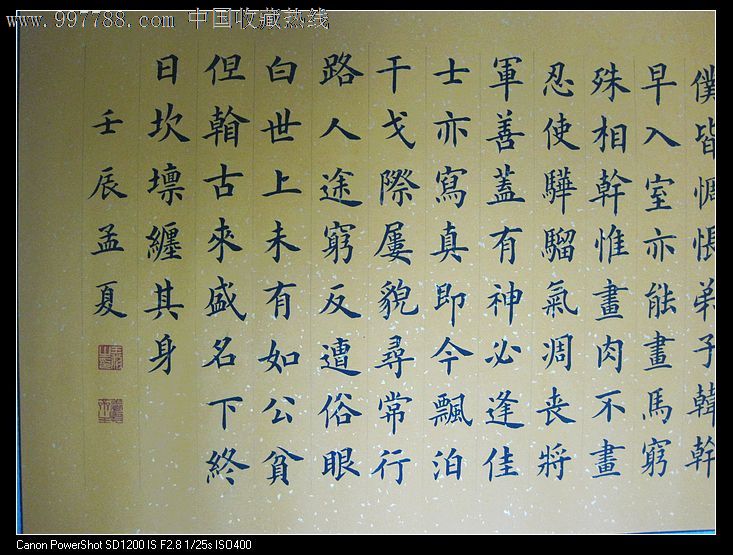 www.997788.com 中国收藏热线
僕皆惆悵弟子韓幹
早入室亦能畫馬窮
殊相幹惟畫肉不畫
忍使驊騮氣凋喪將
軍善蓋有神必逢佳
士亦寫真即今飄泊
干戈際屢貌尋常行
路人途窮反遭俗眼
白世上未有如公貧
但䀍古來盛名下終
日坎壈纏其身
壬辰孟夏
Canon PowerShot SD1200 IS F2.8 1/25s ISO400